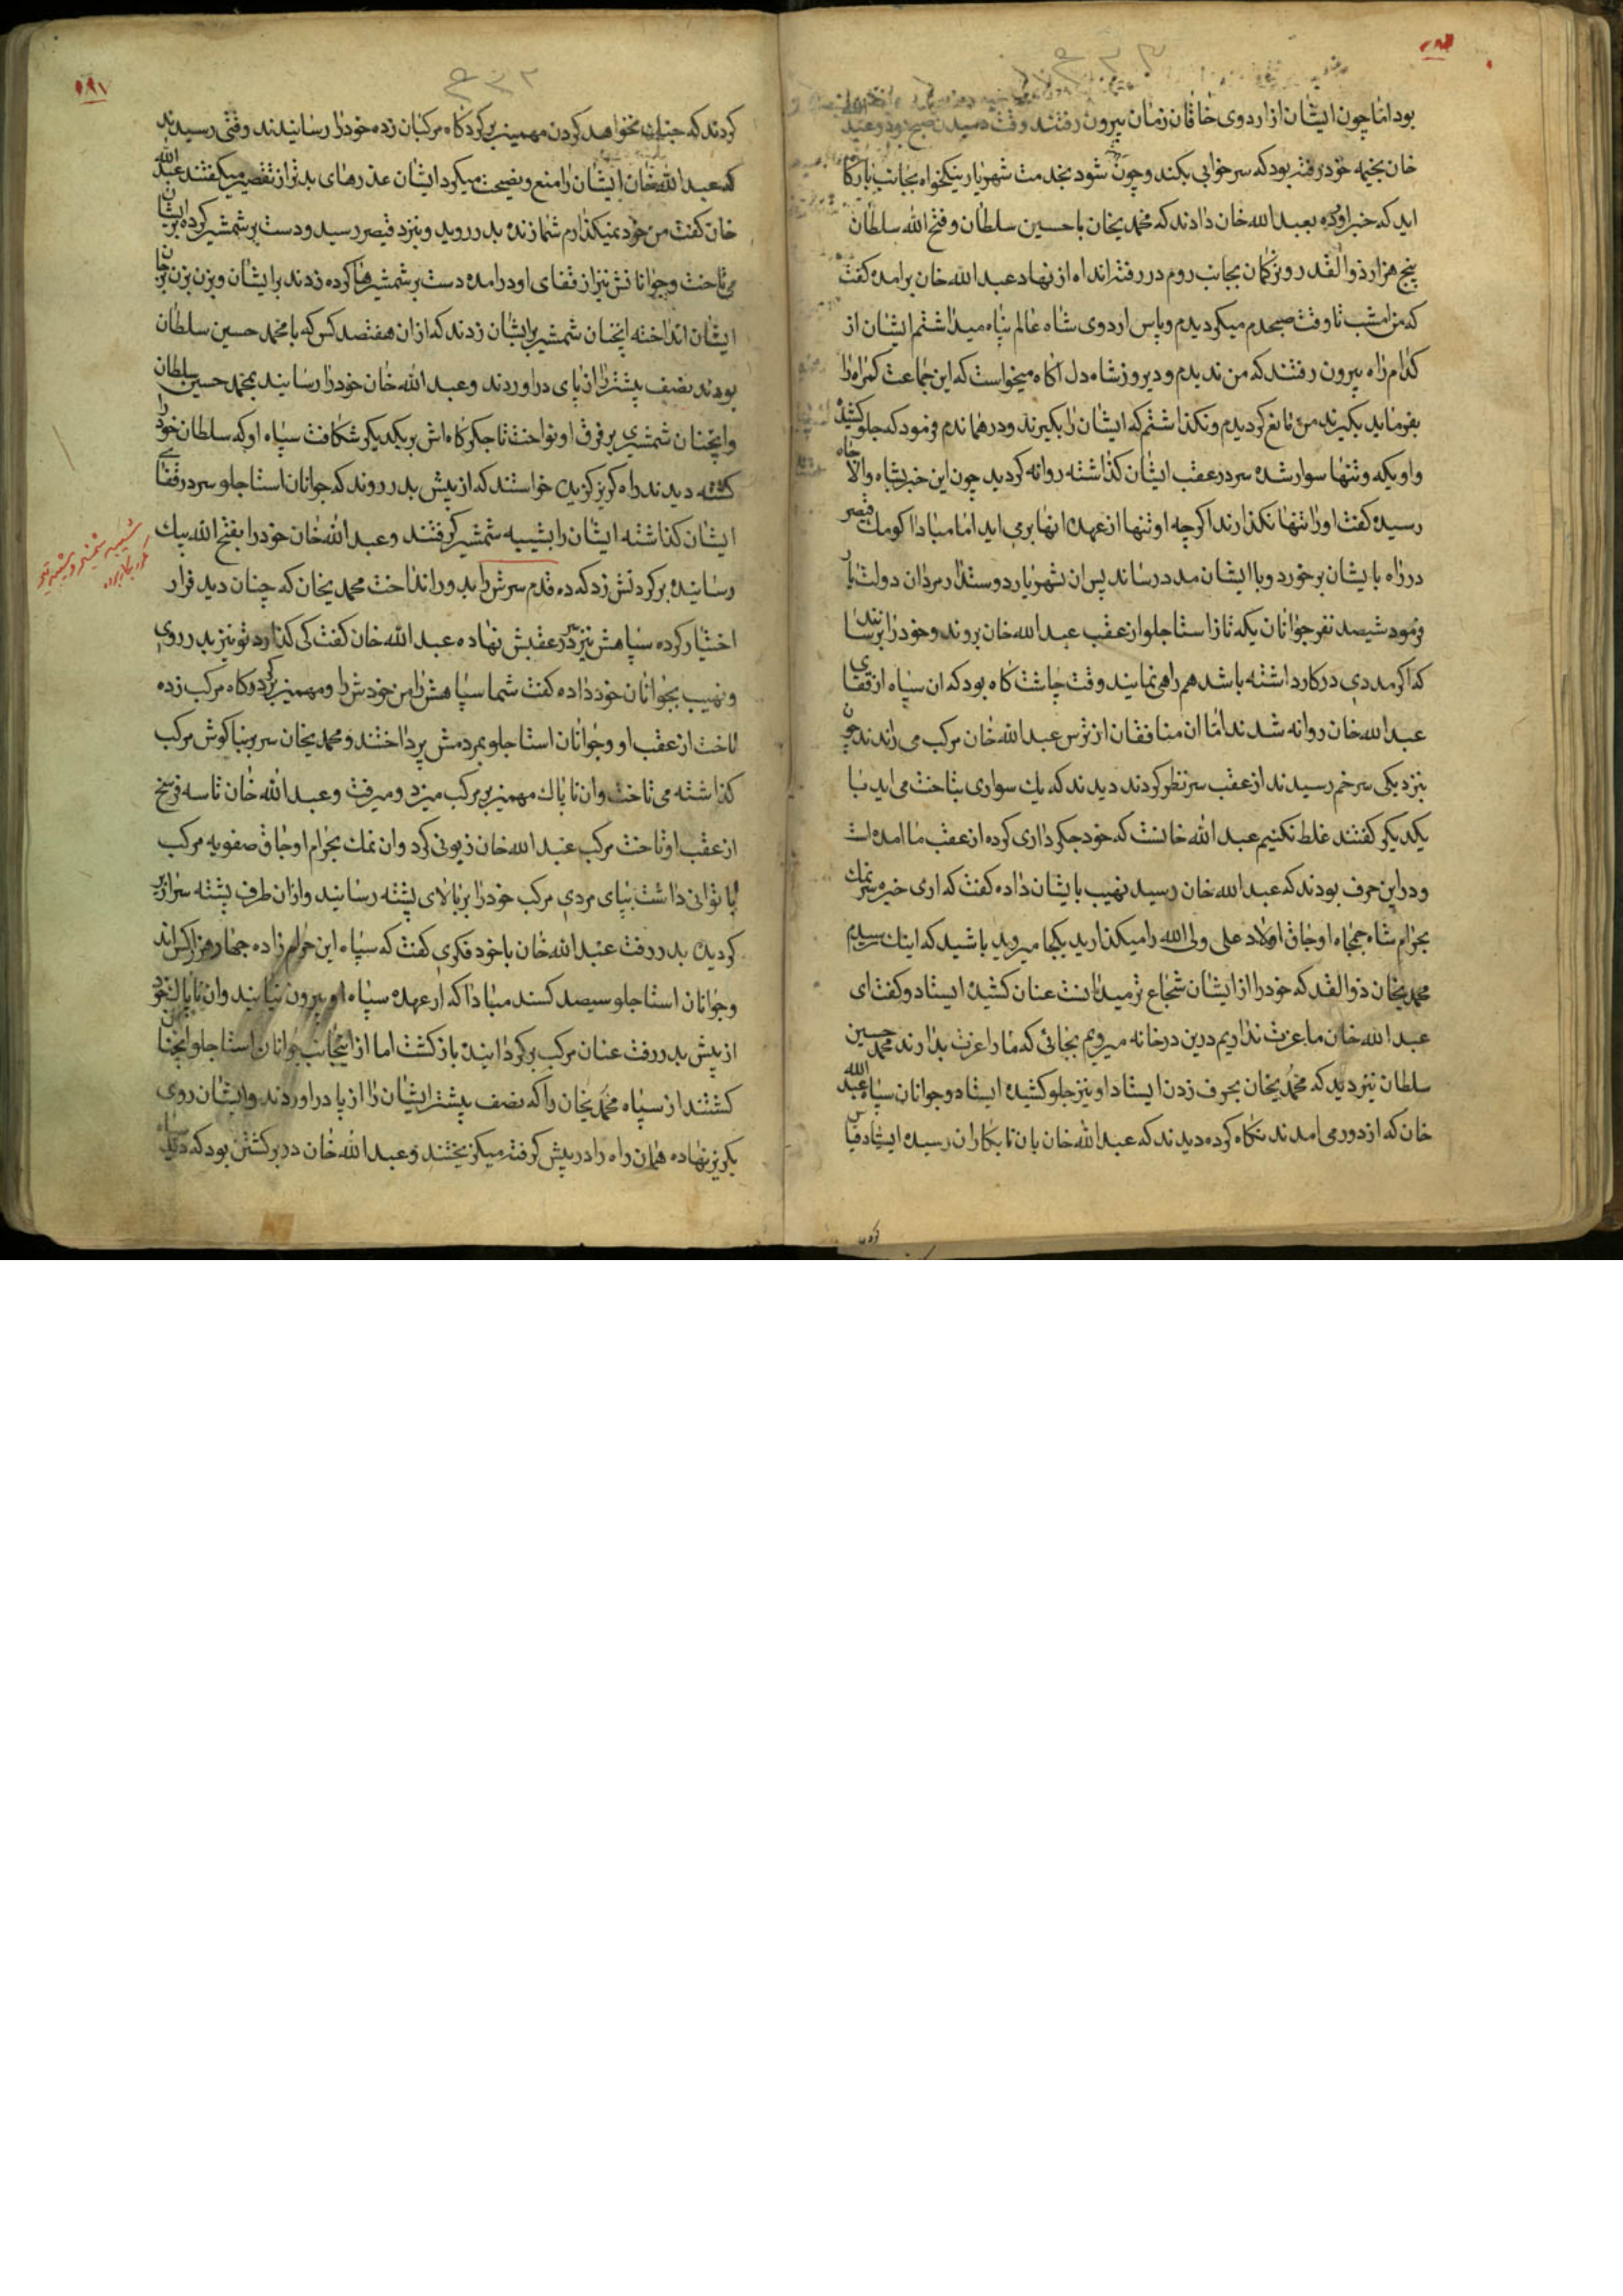 بود اما چون ایشان از اردوی خاقان زمان بیرون رفتند وقت دمیدن صبح بود و عبد الله
خان بخیمه خود رفته بود که سر خوابی بکند و چون شود بخدمت شهریار نیکخواه بجانب بارگاه
اید که خبر اورده بعبد الله خان دادند که محمدیخان با حسین سلطان و فتح الله سلطان
پنج هزار ذوالقدر و ترکمان بجانب روم در رفته اند اه از نهاد عبد الله خان برامد گفت
که من امشب تا وقت صبحدم میکردیدم و پاس اردوی شاه عالم پناه میداشتم ایشان از
کدام راه بیرون رفتند که من ندیدم و دیروز شاه دل اکاه میخواست که این جماعت کمراه را
بفرماید بکیرند من مانع کردیدم و نکذاشتم که ایشان را بکیرند و در همان دم فرمود که جلو کشیده
و او یکه و تنها سوار شده سر در عقب ایشان کذاشته روانه کردید چون این خبر بشاه والا جاه
رسید گفت او را تنها نکذارند اکرچه او تنها از عهده انها برمی اید اما مبادا کومک قیصر
در راه بایشان برخورد و با ایشان مدد رساند پس ان شهریار دوستدار مردان دولت یار
فرمود شیصد نفر جوانان یکه تاز استاجلو از عقب عبد الله خان بروند و خود را برسانند
که اکر مددی در کار داشته باشد همراهی نمایند وقت چاشت کاه بود که ان سپاه از قفای
عبد الله خان روانه شدند اما ان منافقان از ترس عبد الله خان مرکب می راندند چون
بنزدیکی سرخم رسیدند از عقب سر نظر کردند دیدند که یک سواری بتاخت می اید با
یکدیکر کفتند غلط نکنیم عبد الله خانست که خود جکر داری کرده از عقب ما امده است
و در این حرف بودند که عبد الله خان رسید نهیب بایشان داده کفت که اری خیره سر نمک
بحرام شاه جمجاه اوجاق اولاد علی ولی الله را میکذارید بکجا میروید باشید که اینک رسیدم
محمدیخان ذوالقدر که خود را از ایشان شجاع تر میدانست عنان کشیده ایستاد و کفت ای
عبد الله خان ما عزت نداریم درین درخانه میرویم بجائی که ما را عزت بدارند محمد حسین
سلطان نیز دید که محمدیخان بحرف زدن ایستاد او نیز جلو کشیده ایستاد و جوانان سپاه عبد الله
خان که از دور می امدند نکاه کرده دیدند که عبد الله خان بان نابکاران رسیده ایستاد
کردند که جنک بخواهد کردن مهمیز بر کرد کاه مرکبان زده خود را رسانیدند وقتی رسیدند
که عبد الله خان ایشان را منع و نصیحت میکرد ایشان عذرهای بدتر از تقصیر میکفتند عبد الله
خان کفت من خود نمیکذارم شما زنده بدر روید و بنزد قیصر رسید و دست بر شمشیر کرده بر ایشان
می تاخت و جوانانش نیز از قفای او درامده دست بر شمشیرها کرده زدند بر ایشان و بزن بزن بر جان
ایشان انداخته اینچنان شمشیر بر ایشان زدند که از ان هفتصد کس که با محمد حسین سلطان
بودند نصف بیشتر را از پای دراوردند و عبد الله خان خود را رسانید بمحمد حسین سلطان
و اینچنان شمشیری بر فرق او نواخت تا جکرکاه اش بر یکدیکر شکافت سپاه او که سلطان خود را
کشته دیدند راه کریز کزیده خواستند که از پیش بدر روند که جوانان استاجلو سر در قفای
ایشان کذاشته ایشان را بشیبه شمشیر کرفتند و عبد الله خان خود را بفتح الله بیک
رسانیده بر کردنش زد که ده قدم سرش را بدور انداخت محمدیخان که چنان دید فرار
اختیار کرده سپاهش نیز در عقبش نهاده عبد الله خان کفت کی کذارد تو نیز بدر روی
و نهیب بجوانان خود داده کفت شما سپاهش را من خودش را و مهمیز بر کرد کاه مرکب زده
تاخت از عقب او و جوانان استاجلو بمردمش پرداختند و محمدیخان سر بر بناکوش مرکب
کذاشته می تاخت و ان ناپاک مهمیز بر مرکب میزد و میرفت و عبد الله خان تا سه فرسخ
از عقب او تاخت مرکب عبد الله خان زبونی کرد و ان نمک بحرام اوجاق صفویه مرکب
با توانی داشت بپای مردی مرکب خود را بر بالای پشته رسانید و از ان طرف پشته سرازیر
کردید بدر رفت عبد الله خان با خود فکری کفت که سپاه این حرام زاده چهار هزار کس اند
و جوانان استاجلو سیصد کسند مبادا که از عهده سپاه او بیرون نیایند و ان ناپاک خود
از پیش بدر رفت عنان مرکب برکردانیده بازکشت اما از اینجانب جوانان استاجلو اینچنان
کشتند از سپاه محمدیخان را که نصف بیشتر ایشان را از پا دراوردند و ایشان روی
بکریز نهاده همان راه را در پیش کرفته میکریختند و عبد الله خان در برکشتن بود که دید
۱۸۷